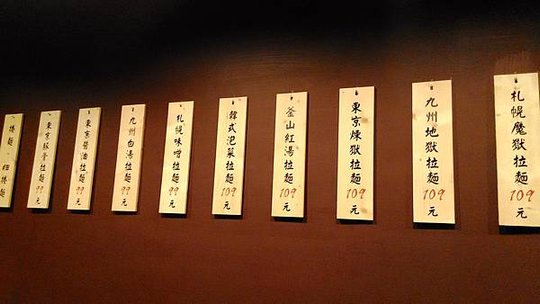 札幌魔獄拉麵109元
九州地獄拉麵109元
東京煉獄拉麵109元
釜山紅湯拉麵109元
韓式泡菜拉麵109元
札幌味噌拉麵99元
九州白湯拉麵99元
東京醬油拉麵99元
東京豚骨拉麵99元